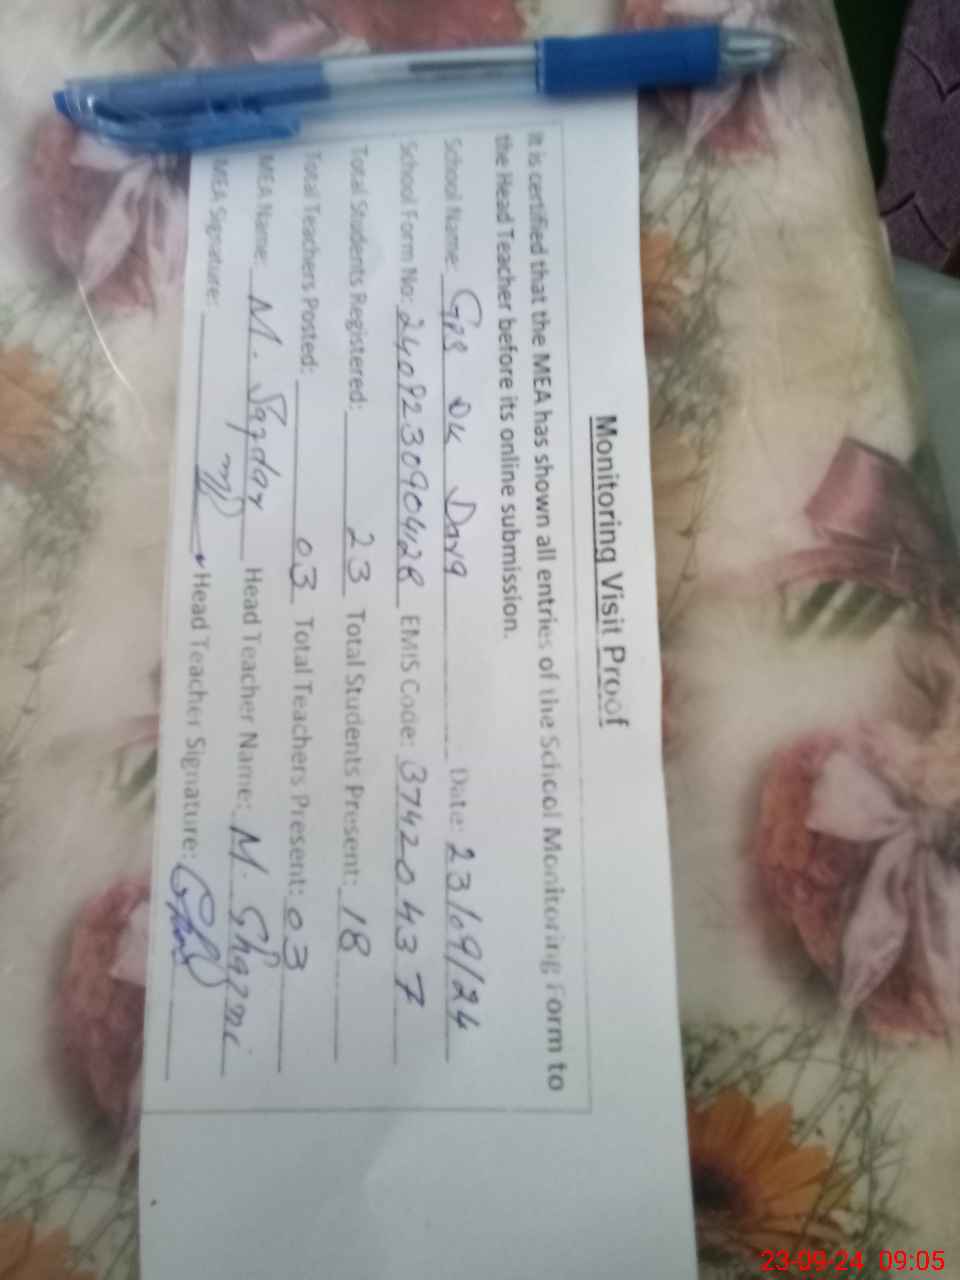 Monitoring Visit Proof
It is certified that the MEA has shown all entries of the School Monitoring Form to
the Head Teacher before its online submission.
School Name: GPS Date: 23/09/24
School Form No: 240923090428 EMIS Code: 37420437
Total Students Registered: 23 Total Students Present: 18
Total Teachers Posted: 03 Total Teachers Present: 03
MEA Name: M. Head Teacher Name: M.
MEA Signature: Head Teacher Signature:
23-09-24 09:05